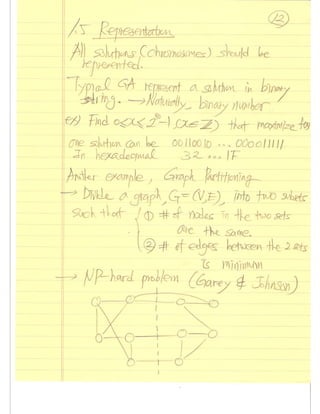 12
1.5 Representation
All solutions (chromosomes) should be
represented.
Typical GA represent a solution in binary
string. → Naturally, binary number
ex) Find 0≤x≤2 -1 (x∈Z) that maximize f(x)
one solution can be 00110010 ... 00001111
In hexadecimal 32 ... 1F
Another example, Graph Partitioning
→ Divide a graph, G=(V,E), into two subsets
such that ① # of nodes in the two sets
are the same.
② # of edges between the 2 sets
is minimum
→ NP-hard problem (Garey & Johnson)